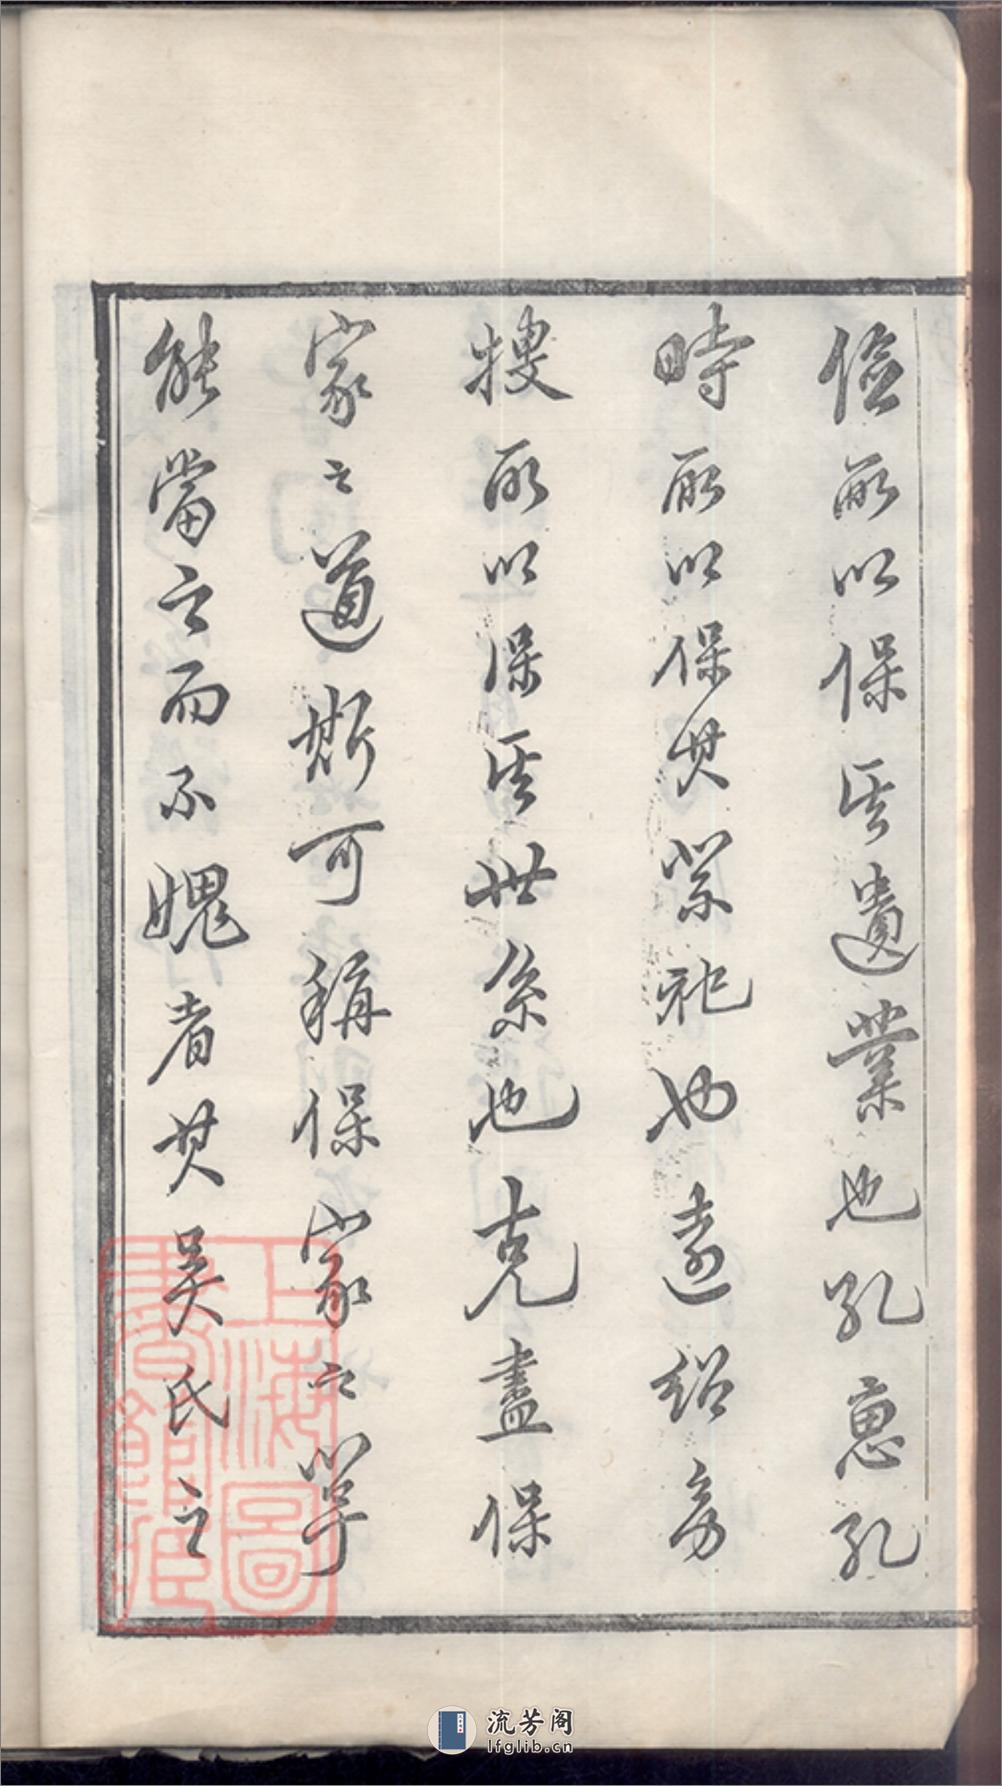 儉所以保其遺業也孔惠孔
時所以保其禋祀也遠紹旁
搜所以保其世系也克盡保
家之道斯可稱保家之肇
能當之而不媿者其吳氏之
上海圖
書館藏
流芳阁
lfglib.cn